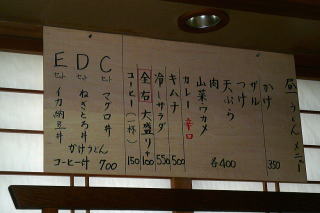 昼 うどん メニュー
かけ 350
ザル
つけ
天ぷら
肉
山菜ワカメ 各400
カレー 辛口 500
キムチ 550
冷しサラダ
全右 大盛りは 100
コーヒー(一杯) 150
Cセット マグロ丼
Dセット ねぎとろ丼
Eセット イカ納豆丼
かけうどん
コーヒー付 700